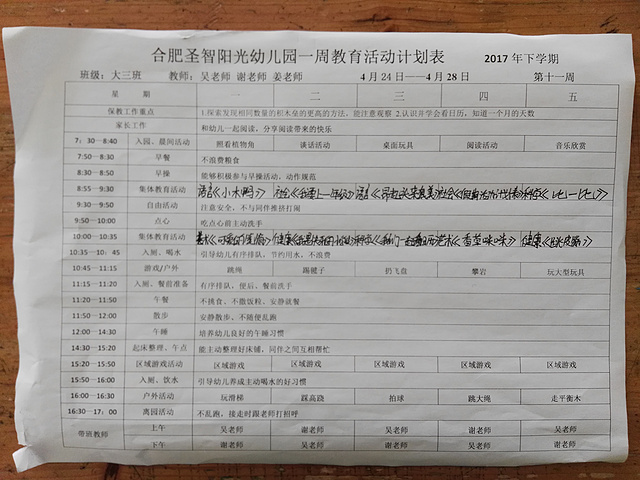 合肥圣智阳光幼儿园一周教育活动计划表 2017 年下学期
班级：大三班 教师：吴老师 谢老师 姜老师 4 月 24 日——4 月 28 日 第十一周
星 期 一 二 三 四 五
保教工作重点 1.探索发现相同数量的积木垒的更高的方法，能注意观察 2.认识并学会看日历，知道一个月的天数
家长工作 和幼儿一起阅读，分享阅读带来的快乐
7：30—8:40 入园、晨间活动 照看植物角 谈话活动 桌面玩具 阅读活动 音乐欣赏
7:50—8:30 早餐 不浪费粮食
8:35—8:50 早操 能够积极参与早操活动，动作规范
8:55—9:30 集体教育活动 语言《小木鸭》 社会《我要上一年级》 《比一比》
9:30—9:50 自由活动 注意安全，不与同伴推挤打闹
9:50—10:00 点心 吃点心前主动洗手
10:00—10:35 集体教育活动 美术 健康 《香蕉咪咪》 健康《跳皮筋》
10:35—10：45 入厕、喝水 引导幼儿有序排队，节约用水，不浪费
10:45—11:15 游戏/户外 跳绳 踢毽子 扔飞盘 攀岩 玩大型玩具
11:15—11:20 入厕、餐前准备 有序排队，便后、餐前洗手
11:20—11:50 午餐 不挑食、不撒饭粒、安静就餐
11:50—12:00 散步 安静散步、不随便乱跑
12:00—14:30 午睡 培养幼儿良好的午睡习惯
14:30—15:20 起床整理、午点 能主动整理好床铺，同伴之间互相帮忙
15:20—15:50 区域游戏活动 区域游戏 区域游戏 区域游戏 区域游戏 区域游戏
15:50—16:00 入厕、饮水 引导幼儿养成主动喝水的好习惯
16:00—16:30 户外活动 玩滑梯 踩高跷 拍球 跳大绳 走平衡木
16:30—17：00 离园活动 不乱跑，接走时跟老师打招呼
带班教师 上午 吴老师 谢老师 吴老师 谢老师 吴老师
下午 谢老师 吴老师 谢老师 吴老师 谢老师